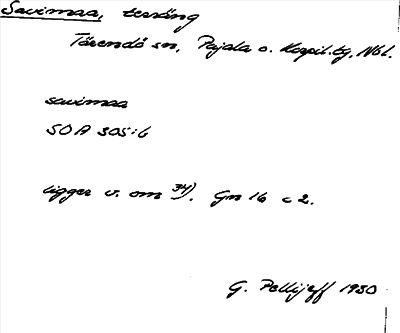 Savimaa, terräng
Tärendö sn, Pajala o. Korpil. tg, Nbl.
savimaa
SOA 305:6
ligger v. om 34). Gm 16 c 2.
G. Pellijeff 1930